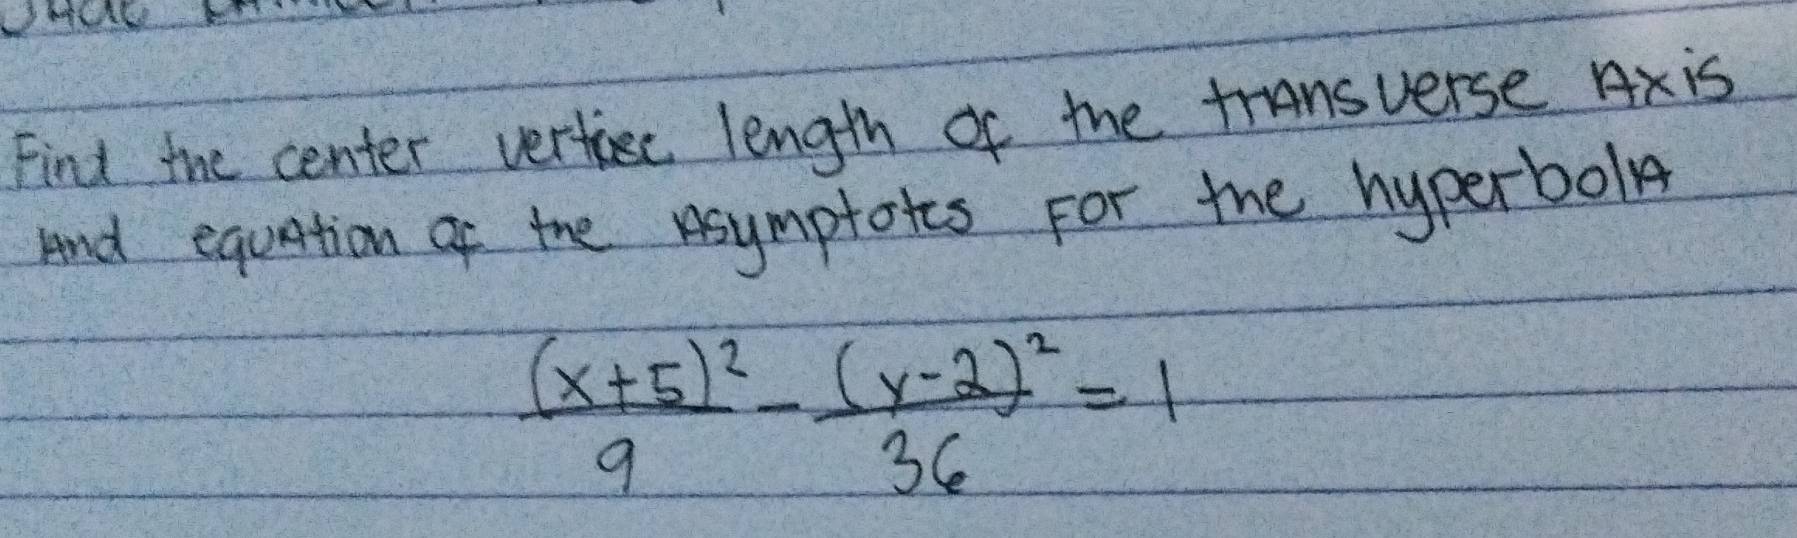 Find the center vertice length of the transverse Axis
And equation of the Asymptotes For the hyperbola
(x+5)² - (y-2)² = 1
9 36